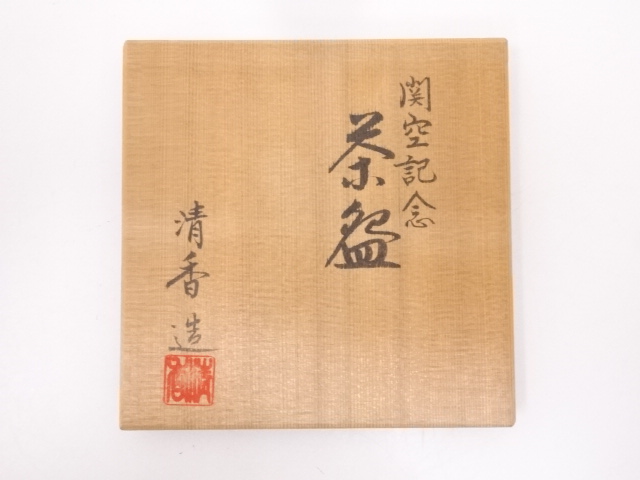 関空記念
茶盌
清香造
清香